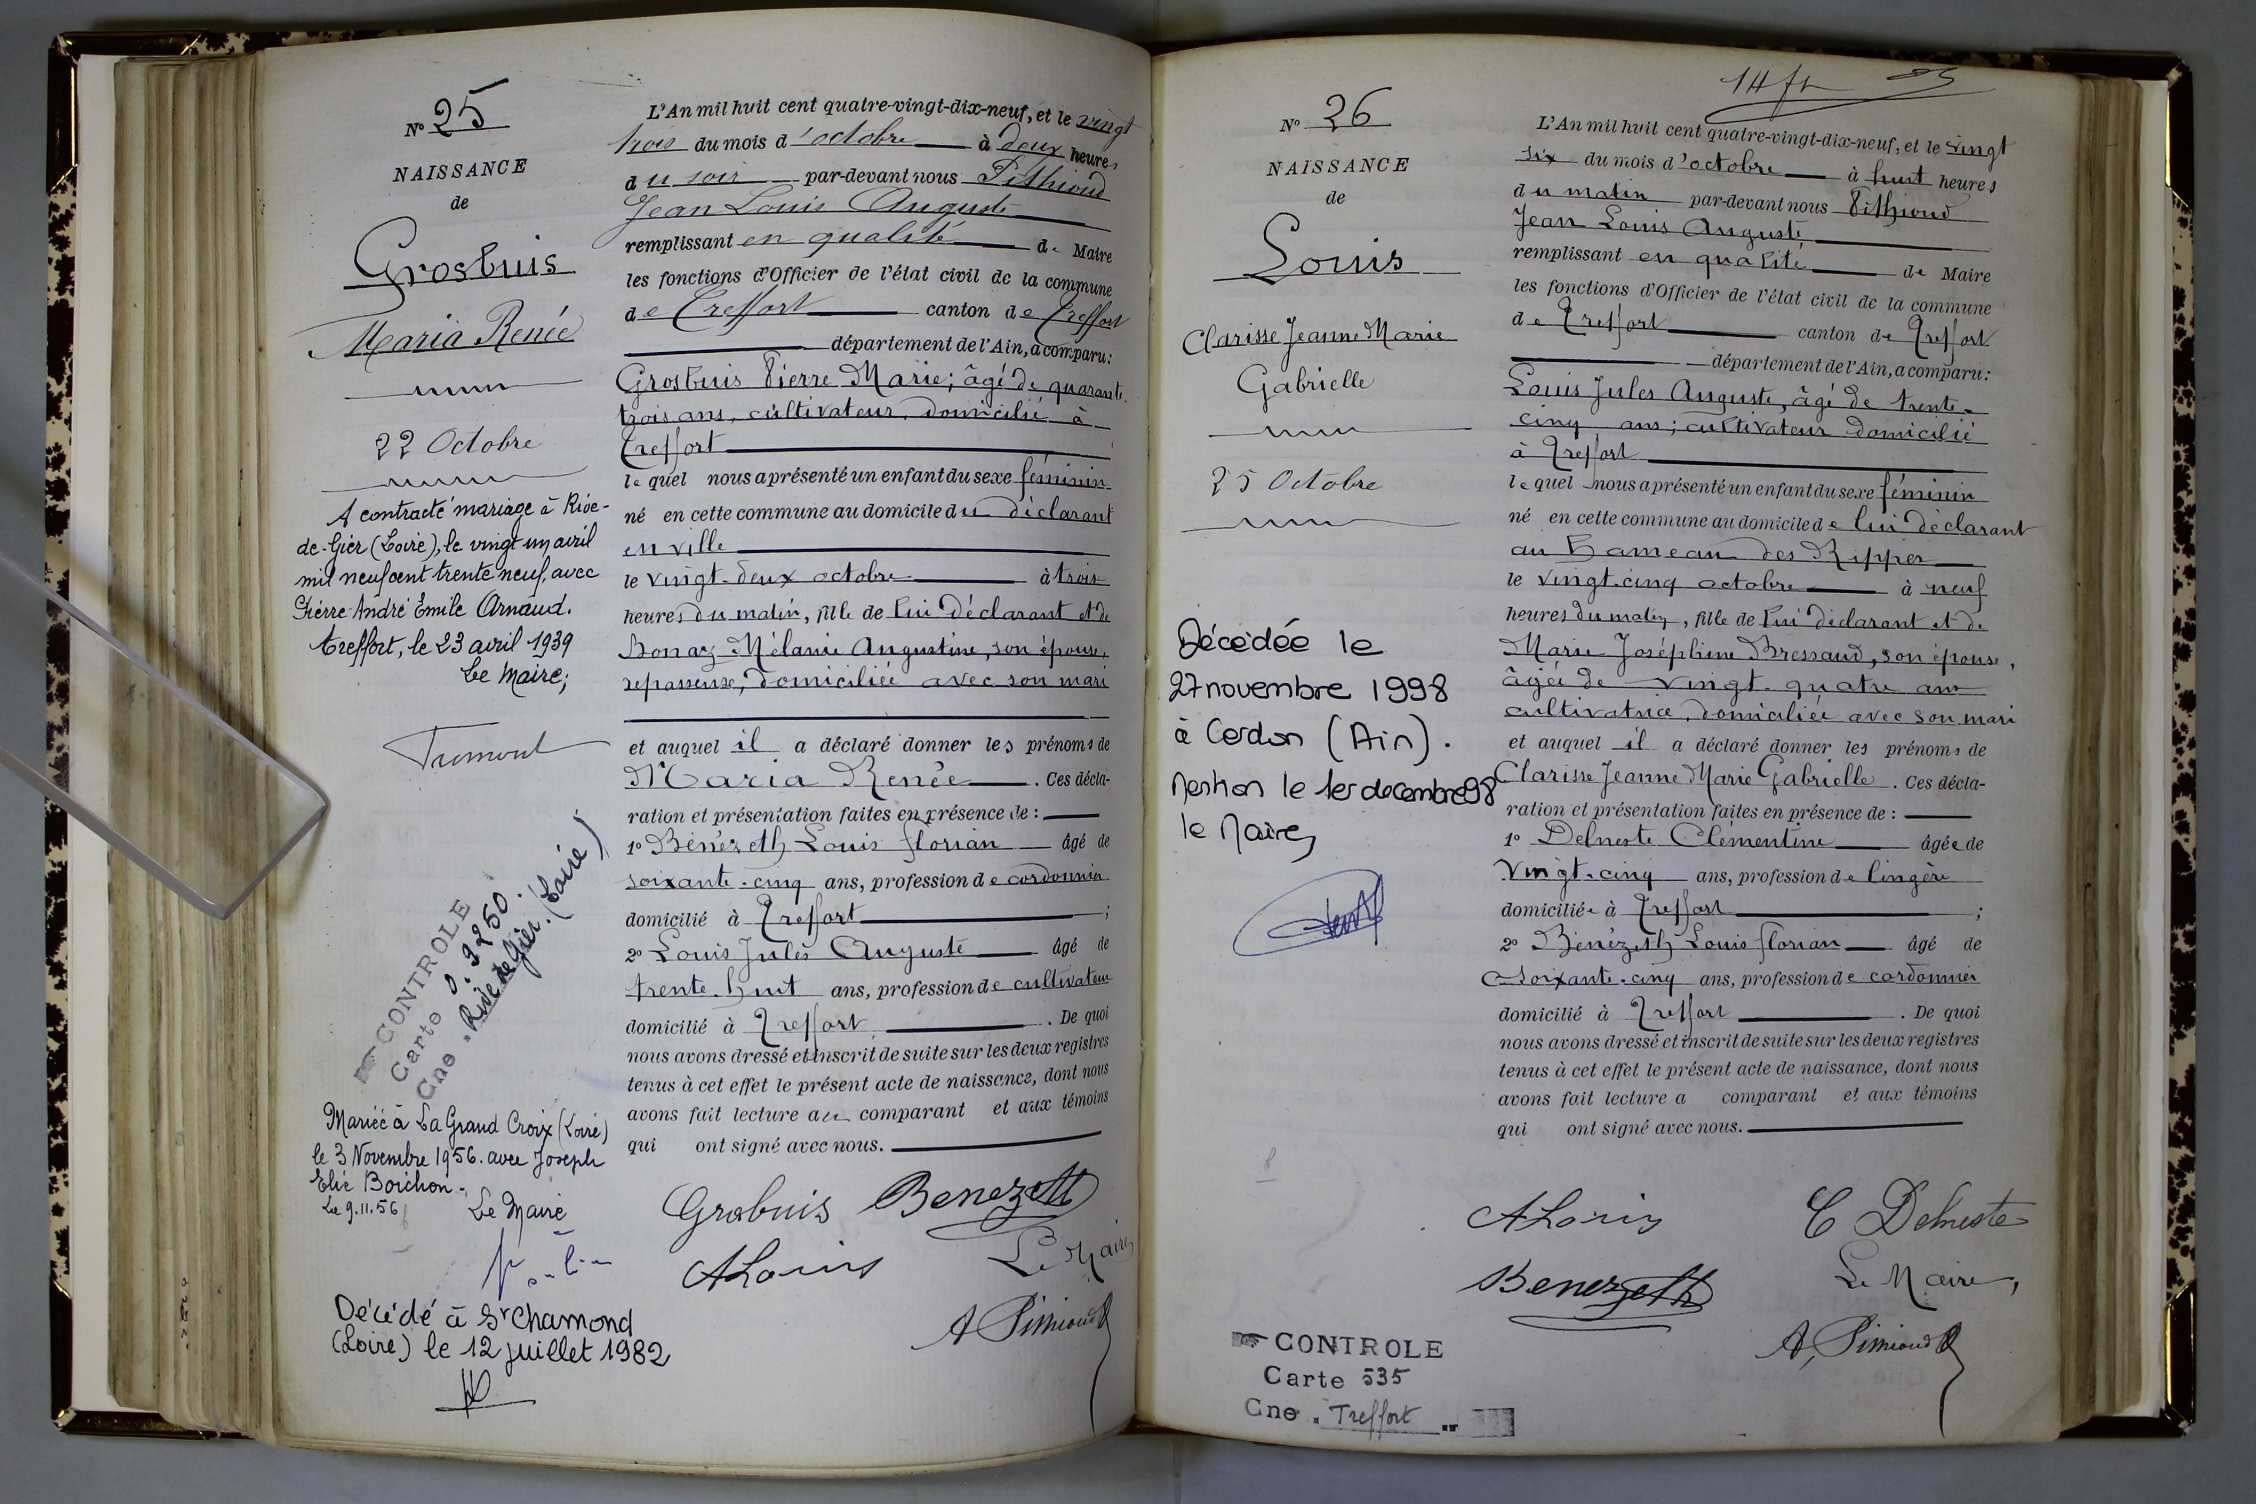 N° 25
NAISSANCE
de
Grosbuis
Maria Renée
22 Octobre
A contracté mariage à Rive-
de-Gier (Loire), le vingt un avril
mil neuf cent trente neuf, avec
Pierre André Emile Arnaud.
Treffort, le 23 avril 1939
Le Maire;
CONTROLE
Carte 0.9250.
Cne. Rive de Gier. (Loire)
Mariée à La Grand Croix (Loire)
le 3 Novembre 1956. avec Joseph
Elie Boichon.
Le 9.11.56
Le Maire
Décédé à St Chamond
(Loire) le 12 juillet 1982
L'An mil huit cent quatre-vingt-dix-neuf, et le vingt
trois du mois d'octobre à deux heures
du soir par-devant nous Pithioud
Jean Louis Auguste
remplissant en qualité de Maire
les fonctions d'Officier de l'état civil de la commune
de Treffort canton de Treffort
département de l'Ain, a comparu:
Grosbuis Pierre Marie; âgé de quarante
trois ans, cultivateur, domicilié à
Treffort
lequel nous a présenté un enfant du sexe féminin
né en cette commune au domicile du déclarant
en ville
le vingt-deux octobre à trois
heures du matin, fille de lui déclarant et de
Bonaz Mélanie Augustine, son épouse,
repasseuse, domiciliée avec son mari
et auquel il a déclaré donner les prénoms de
Maria Renée. Ces décla-
ration et présentation faites en présence de :
1° Bénézeth Louis florian âgé de
soixante-cinq ans, profession de cordonnier
domicilié à Treffort ;
2° Louis Jules Auguste âgé de
trente-huit ans, profession de cultivateur
domicilié à Treffort. De quoi
nous avons dressé et inscrit de suite sur les deux registres
tenus à cet effet le présent acte de naissance, dont nous
avons fait lecture au comparant et aux témoins
qui ont signé avec nous.
Grosbuis Benezeth
A Louis Le Maire
A Pithioud
14 fh
N° 26
NAISSANCE
de
Louis
Clarisse Jeanne Marie
Gabrielle
25 Octobre
Décédée le
27 novembre 1998
à Cerdon (Ain).
Mention le 1er decembre 98
le Maire,
CONTROLE
Carte 535
Cne. Treffort
L'An mil huit cent quatre-vingt-dix-neuf, et le vingt
six du mois d'octobre à huit heures
du matin par-devant nous Pithioud
Jean Louis Auguste
remplissant en qualité de Maire
les fonctions d'Officier de l'état civil de la commune
de Treffort canton de Treffort
département de l'Ain, a comparu:
Louis Jules Auguste, âgé de trente-
cinq ans; cultivateur domicilié
à Treffort
lequel nous a présenté un enfant du sexe féminin
né en cette commune au domicile de lui déclarant
au hameau des Ripper
le vingt-cinq octobre à neuf
heures du matin, fille de lui déclarant et de
Marie Joséphine Bressaud, son épouse,
âgée de vingt-quatre ans
cultivatrice, domiciliée avec son mari
et auquel il a déclaré donner les prénoms de
Clarisse Jeanne Marie Gabrielle. Ces décla-
ration et présentation faites en présence de :
1° Delneste Clémentine âgée de
vingt-cinq ans, profession de lingère
domiciliée à Treffort ;
2° Bénézeth Louis florian âgé de
soixante-cinq ans, profession de cordonnier
domicilié à Treffort. De quoi
nous avons dressé et inscrit de suite sur les deux registres
tenus à cet effet le présent acte de naissance, dont nous
avons fait lecture a comparant et aux témoins
qui ont signé avec nous.
A Louis C Delneste
Benezeth Le Maire,
A, Pithioud